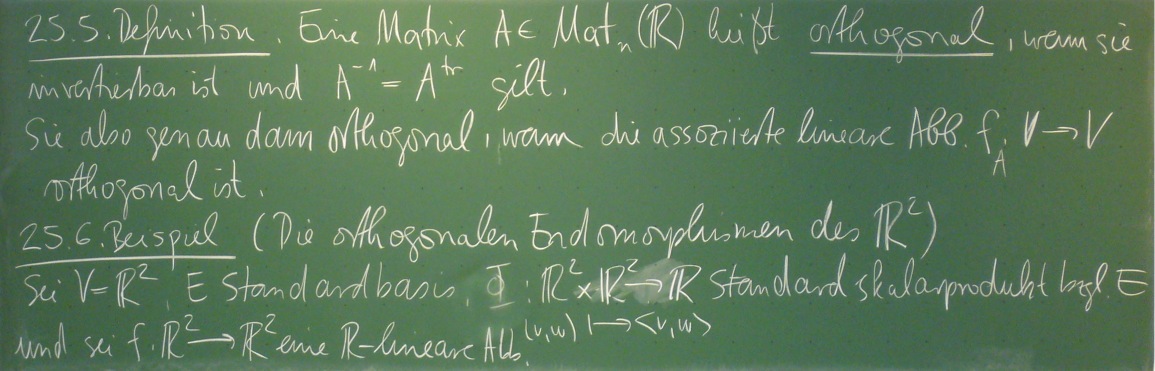 25.5. Definition. Eine Matrix A ∈ Mat_n(ℝ) heißt orthogonal, wenn sie
invertierbar ist und A⁻¹ = A^tr gilt.
Sie also genau dann orthogonal, wenn die assoziierte lineare Abb. f_A: V → V
orthogonal ist.
25.6. Beispiel (Die orthogonalen Endomorphismen des ℝ²)
Sei V = ℝ², E Standardbasis, Φ : ℝ² × ℝ² → ℝ Standardskalarprodukt bzgl. E
(v,w) ↦ <v,w>
und sei f: ℝ² → ℝ² eine ℝ-lineare Abb.